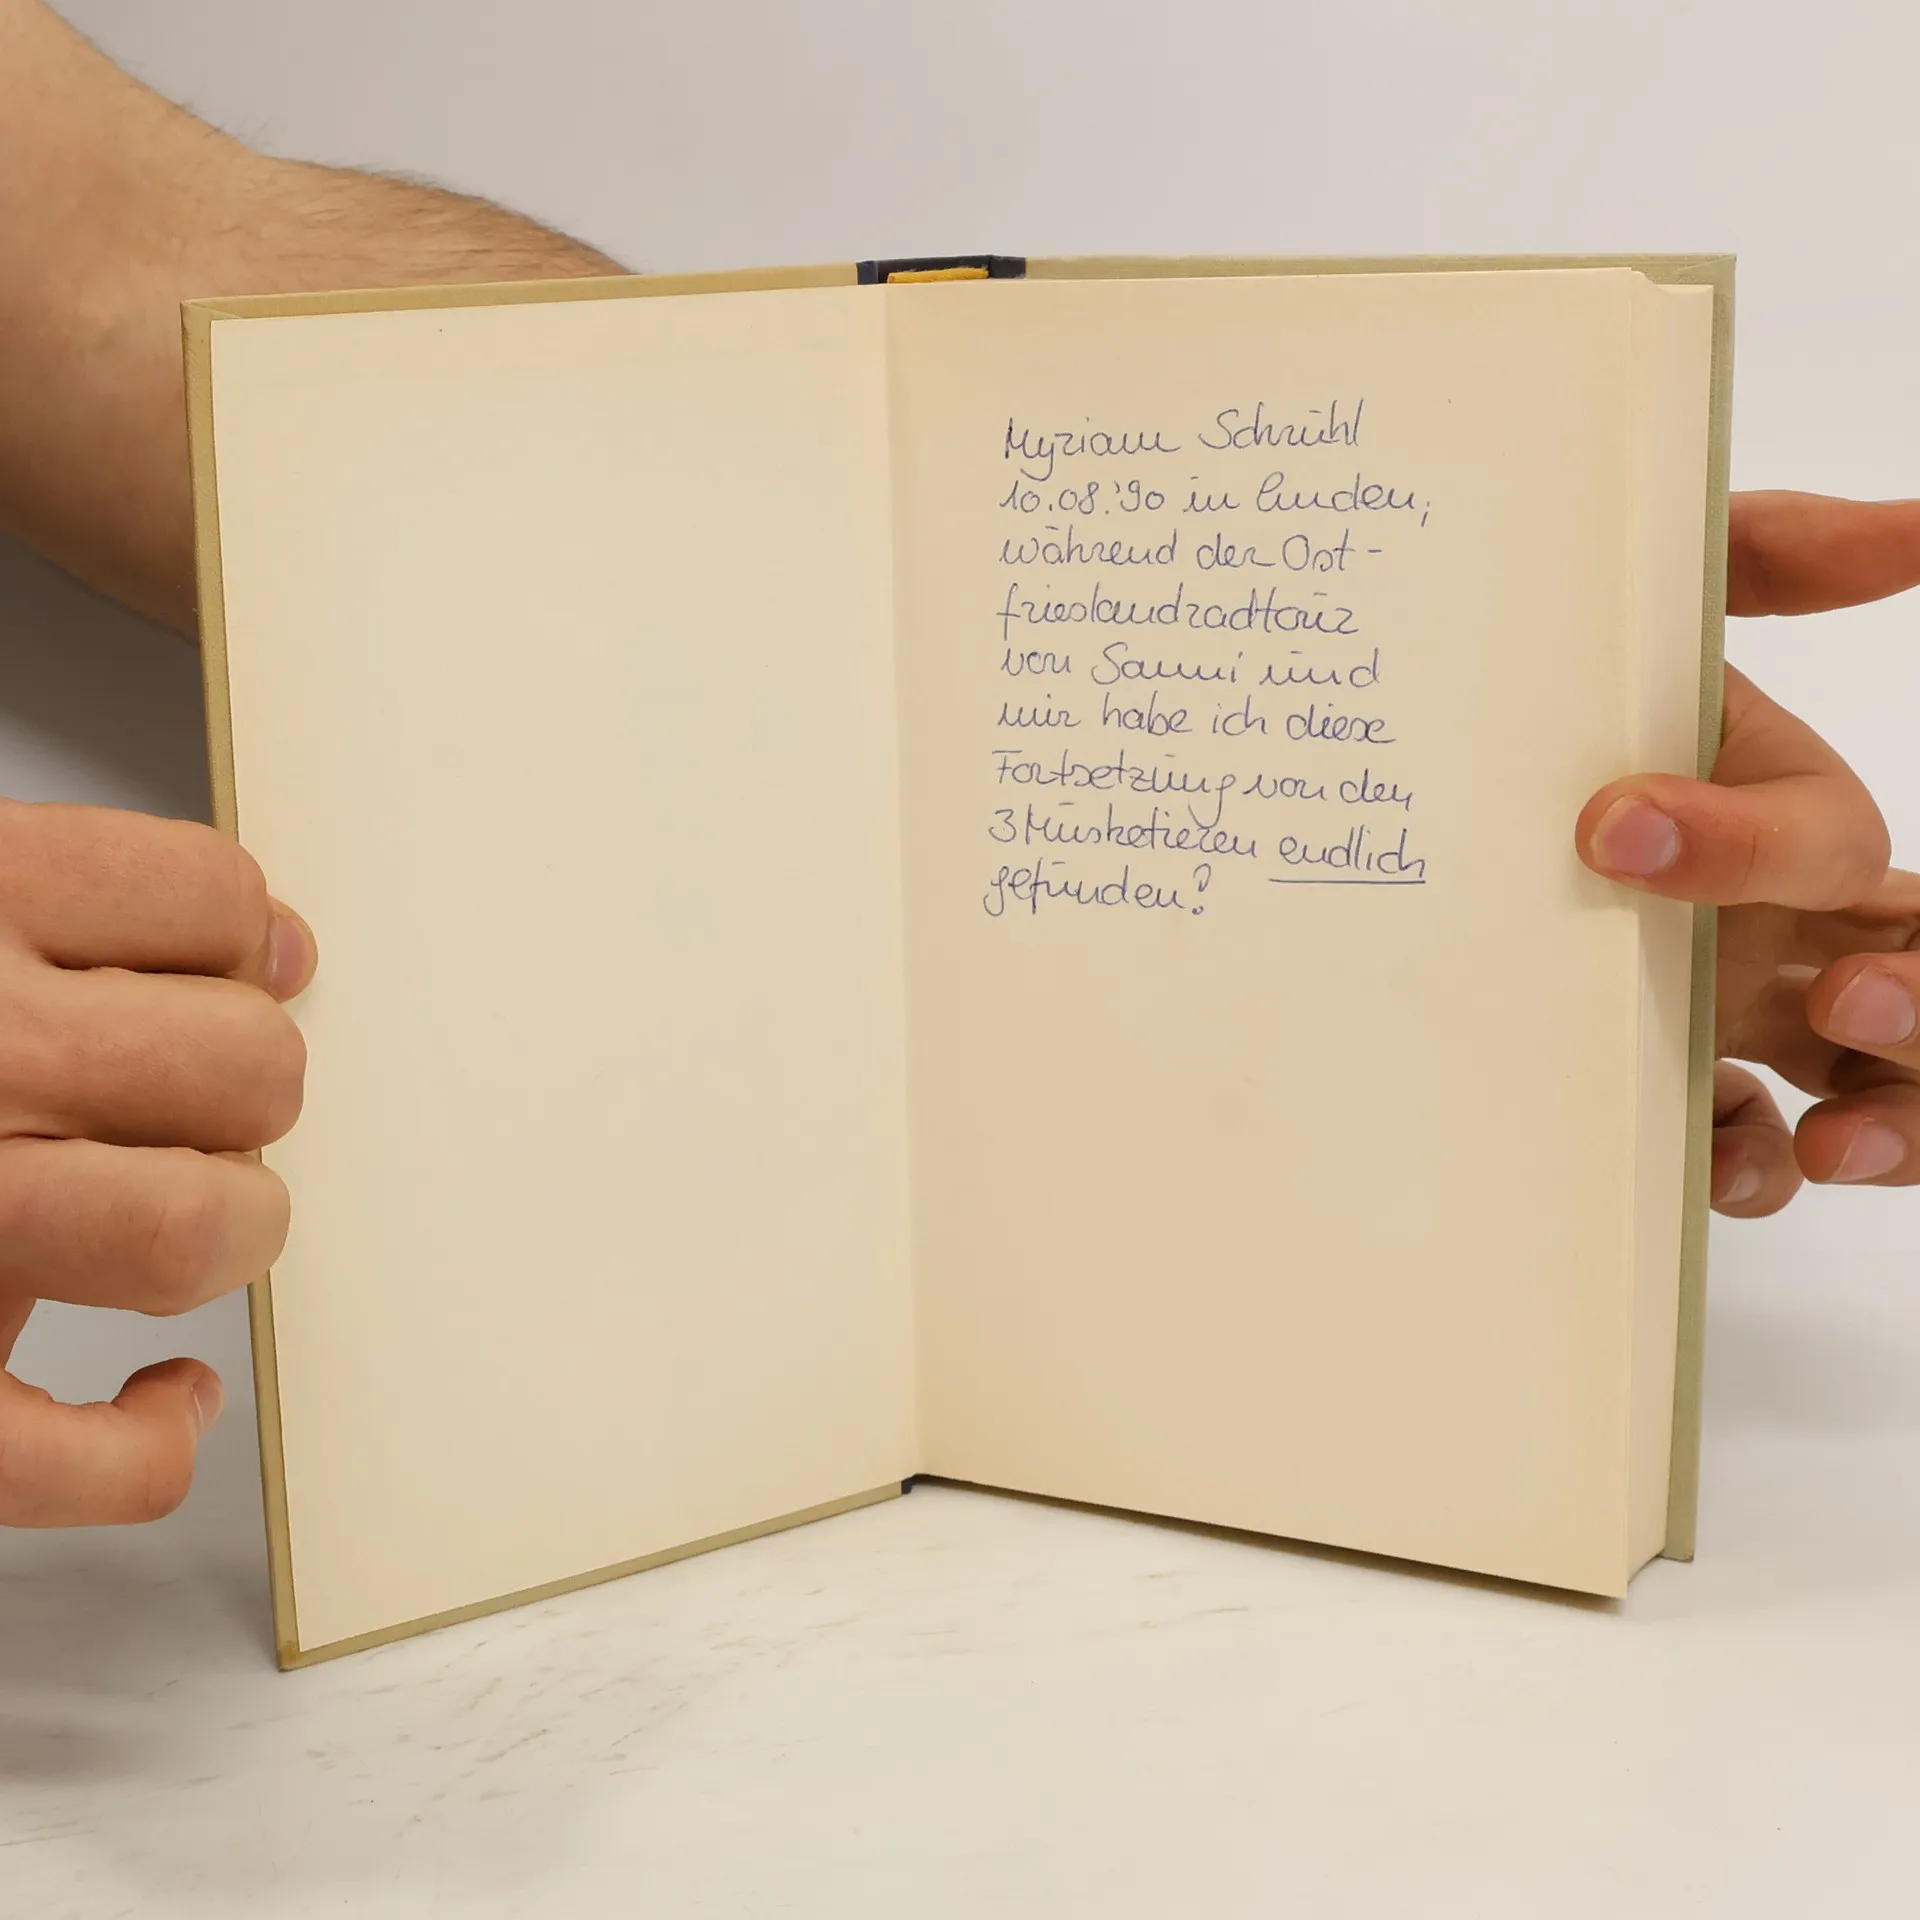 Myriam Schrühl
10.08.'90 in Emden,
während der Ost-
frieslandradtour
von Sanni und
mir habe ich diese
Fortsetzung von den
3 Musketieren endlich
gefunden!